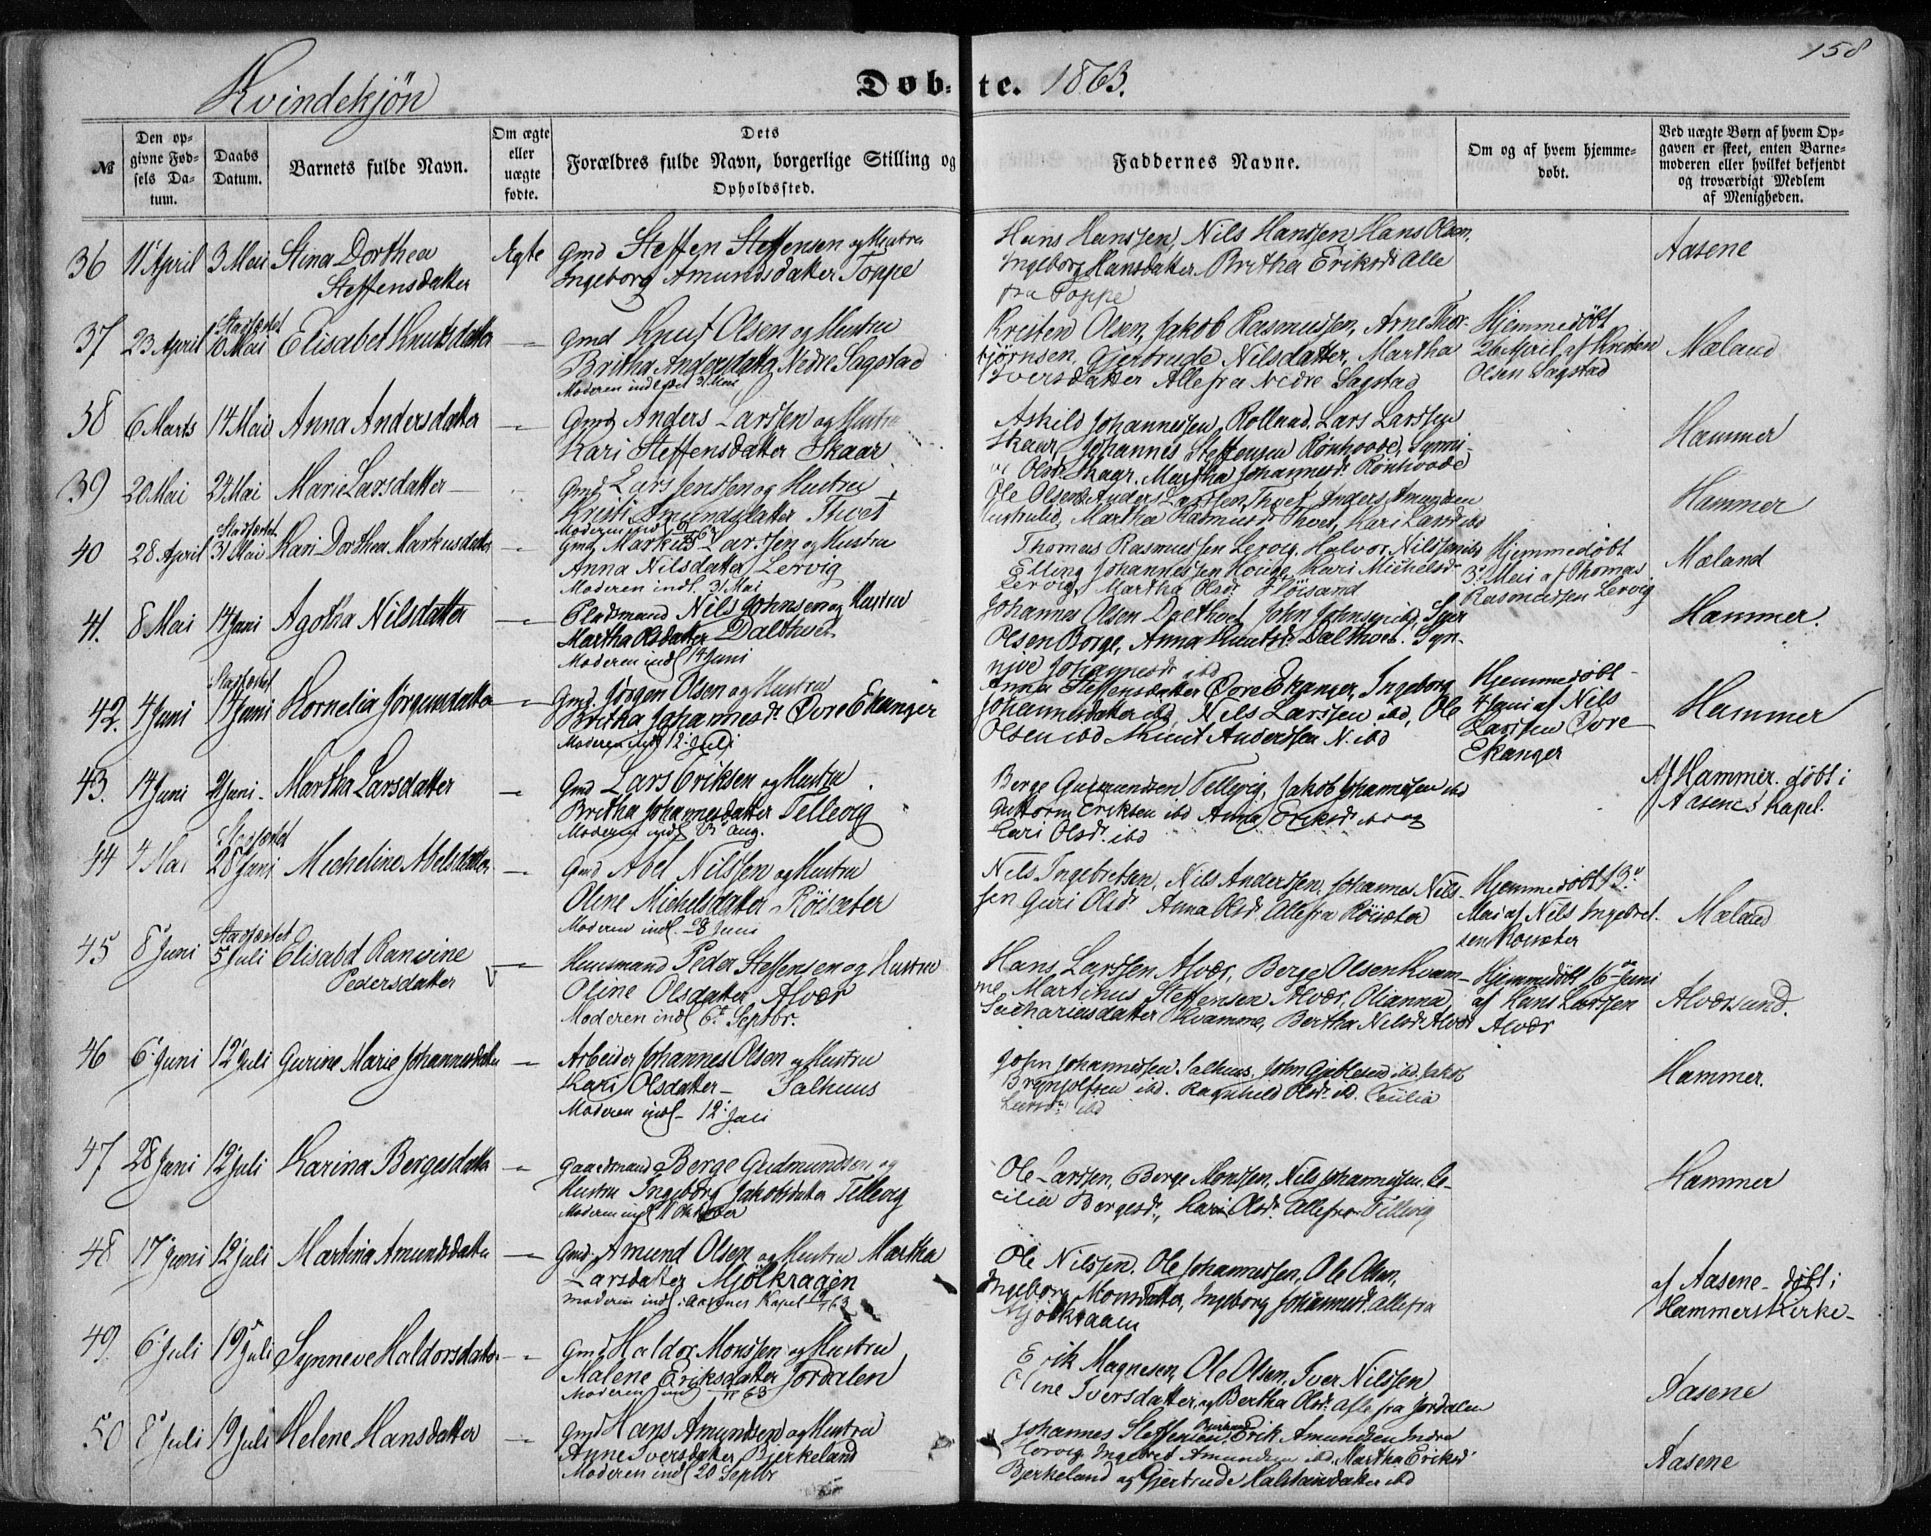 158
Kvindekjön
Døbte. 1863.
№
Den opgivne Fødsels Datum.
Daabs Datum.
Barnets fulde Navn.
Om ægte eller uægte fødte.
Dets
Forældres fulde Navn, borgerlige Stilling og
Opholdssted.
Faddernes Navne.
Om og af hvem hjemmedøbt.
Ved uægte Børn af hvem Opgaven er skeet, enten Barnemoderen eller hvilket bekjendt og troværdigt Medlem af Menigheden.
36 11 April 3 Mai Stina Dorthea Steffensdatter Egte Gmd Steffen Steffensen og Hustru
Ingeborg Amundsdatter Toppe
Hans Hanssen, Nils Hanssen, Hans Olsen,
Ingeborg Hansdatter, Britha Eriksdr Alle
fra Toppe
Aasene
37 23 April Stadfæstet 10 Mai Elisabet Knutsdatter — Gmd Knut Olsen og Hustru
Britha Andersdatter Nedre Sagstad
Kristen Olsen, Jakob Rasmussen, Arne Thorbjørnsen, Gjertrude Nilsdatter, Martha
Iversdatter Alle fra Nedre Sagstad
Hjemmedøbt
26 April af Kristen
Olsen Sagstad
Mæland
38 6 Marts 14 Mai Anna Andersdatter — Gmd Anders Larssen og Hustru
Kari Steffensdatter Skaar
Askild Johannessen, Lars Larssen
Skaar, Johannes Steffensen
Olsdr Skaar, Martha Johannesdr
Hammer
39 20 Mai 24 Mai Marie Larsdatter — Gmd Lars Jenssen og Hustru
Kristi Amundsdatter Thvet
Ole Olsen, Anders Larssen Thvet, Anders Amundsen
Martha Rasmusdr Thvet, Kari Larsdr ibd
Hammer
40 28 April Stadfæstet 31 Mai Kari Dorthea Markusdatter — Gmd Markus Larssen og Hustru
Anna Nilsdatter Lervig
Moderen indl. 31 Mai
Thomas Rasmussen Lervig, Halvor Nilssen ibd
Elling Johannessen Houge, Kari Michelsdr
Lervig, Martha Olsdr Høisand
Hjemmedøbt
3 Mai af Thomas
Rasmussen Lervig
Mæland
41. 8 Mai 14 Juni Agotha Nilsdatter — Pladsmand Nils Johnsen og Hustru
Martha Olsdatter Dalthvet
Moderen indl 14 Juni
Johannes Olsen Dalthvet, John Johnsen ibd,
Olsen Borge, Anna Knutsdr Dalthvet, Synnive Johannesdr ibd
Hammer.
42. 4 Juni Stadfæstet 14 Juni Kornelia Jörgensdatter — Gmd. Jörgen Olsen og Hustru
Britha Johannesdr Øvre Ekanger
Moderen indl 12 Juli
Anna Steffensdatter Øvre Ekanger, Ingeborg
Johannesdatter ibd, Nils Larssen ibd, Ole
Olsen ibd Knut Anderssen N. ibd
Hjemmedøbt
4 Juni af Nils
Larssen Øvre
Ekanger
Hammer
43. 14 Juni 21 Juni Martha Larsdatter — Gmd Lars Eriksen og Hustru
Britha Johannesdatter Tellevig
Berge Gudmundsen Tellevig, Jakob Johannessen ibd
Guttorm Eriksen ibd Anna Eriksdr ibd og
Kari Olsdr. ibd
Af Hammer. døbt i
Aasenes Kapel.
44 4 Mai Stadfæstet 28 Juni Micheline Abelsdatter — Gmd Abel Nilssen og Hustru
Oline Michelsdatter Röisæter
Moderen indl. 28 Juni
Nils Ingebretsen, Nils Anderssen, Johannes Nilssen Guri Olsdr Anna Olsdr Alle fra Röisæter
Hjemmedøbt 13
Mai af Nils Ingebretsen Röisæter
Mæland
45 8 Juni Stadfæstet 5 Juli Elisabd Ranvine Pedersdatter — Huusmand Peder Steffensen og Hustru
Oline Olsdatter Alvær
Moderen indl 6t Septbr.
Hans Larssen Alvær, Berge Olsen Kvamme, Martinus Steffensen Alvær, Olianna
Sachariasdatter Kvamme, Bertha Nilsdr Alvær
Hjemmedøbt 16 Juni
af Hans Larssen
Alvær
Alværsund.
46 6 Juni 12 Juli Gurine Marie Johannesdatter — Arbeider Johannes Olsen og Hustru
Kari Olsdatter — Salhuus
Moderen indl — 12 Juli
John Johannessen Salhuus, John Gjeblesen ibd. Jakob
Brynjolfsen ibd. Ragnhild Olsdr ibd. Cecilia
Larsdr. ibd
Hammer.
47. 28 Juni 12 Juli Karina Bergesdatter — Gaardmand Berge Gudmundsen og
Hustru Ingeborg Jakobsdatter Tellevig
Moderen indl 11 Oktober
Ole Larssen, Berge Monssen, Nils Johannessen, Cecilia Bergesdr., Kari Olsdr. Alle fra Tellevig
Hammer
48 17 Juni 12 Juli Martina Amundsdatter — Gmd. Amund Olsen og Hustru Martha
Larsdatter Mjölkragen
Moderen indl. i Aasenes Kapel
Ole Nilssen. Ole Johannessen, Ole Olsen,
Ingeborg Monsdatter, Ingeborg Johannesdr. Alle fra
Mjölkraaen
af Aasene — døbt i
Hammers Kirke —
49. 6 Juli 19 Juli Synneve Haldorsdatter — Gmd Haldor Monssen og Hustru
Malene Eriksdatter Jordalen
Erik Magnesen, Ole Olsen, Iver Nilssen
Oline Iversdatter og Bertha Olsdr. Alle fra Jordalen
Aasene
50 8 Juli 19 Juli Helene Hansdatter — Gmd Hans Amundsen og Hustru
Anne Iversdatter Bjerkeland
Moderen indl 20 Septbr
Johannes Steffensen, Erik Amundsen Indre
Hervig, Ingebret Amundsen ibd, Martha Eriksdr
Bjerkeland og Gjertrude Halstandatter ibd
Aasene